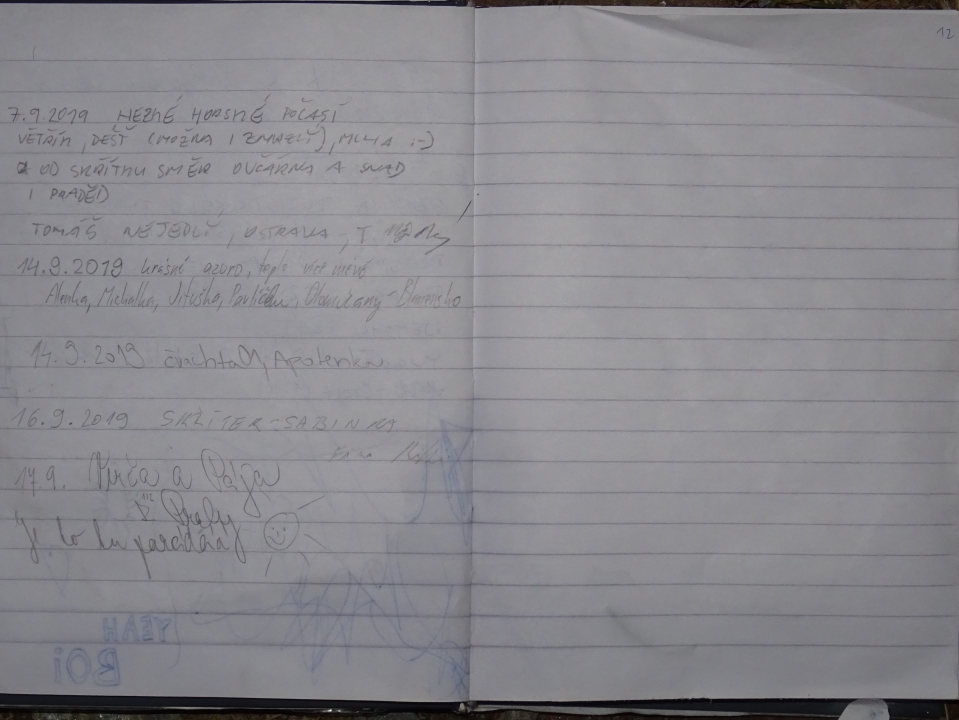 12
7.9.2019 HEZKÉ HORSKÉ POČASÍ
VĚTŘÍK, DEŠŤ (MOŽNÁ I ZMRZLÝ), MLHA :-)
OD SKŘÍTKU SMĚR OVČÁRNA A SNAD
I PRADĚD
TOMÁŠ NEJEDLÝ, OSTRAVA, T
14.9.2019 krásné azuro, teplo více méně
Alenka, Michalka, Jituška, Pavlíček, Olomučany - Blanensko
14.9.2019 Apolenka
16.9.2019 SABINKA
17.9. Verča a Pája
z Prahy
Je to tu parádní
YEAH
BOI